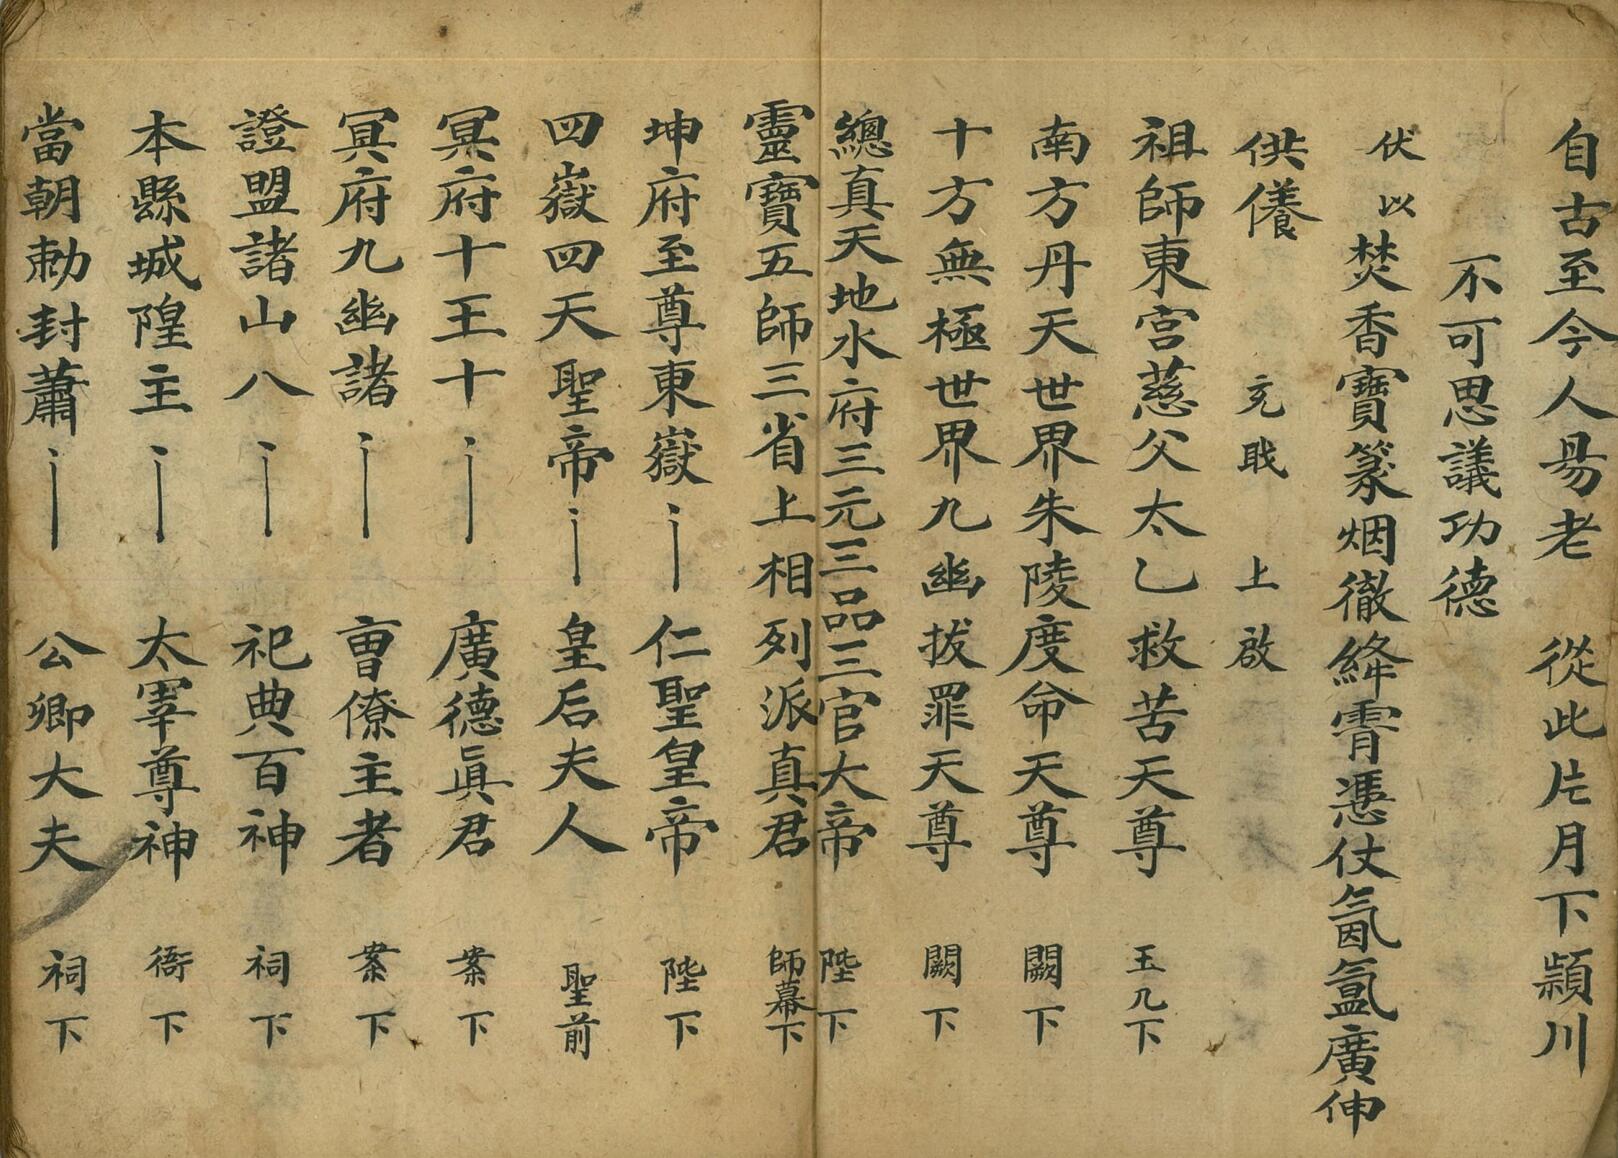 自古至今人易老　從此片月下頴川
不可思議功德
伏以焚香寶篆烟徹絳霄憑仗氤氲廣伸
供養　充戢　上啟
祖師東宮慈父太乙救苦天尊　玉几下
南方丹天世界朱陵度命天尊　闕下
十方無極世界九幽拔罪天尊　闕下
總真天地水府三元三品三官大帝　陛下
靈寶五師三省上相列派真君　師幕下
坤府至尊東嶽　仁聖皇帝　陛下
四嶽四天聖帝　皇后夫人　聖前
冥府十王十　廣德真君　案下
冥府九幽諸　曹僚主者　案下
證盟諸山八　祀典百神　祠下
本縣城隍主　太宰尊神　衙下
當朝勅封蕭　公卿大夫　祠下